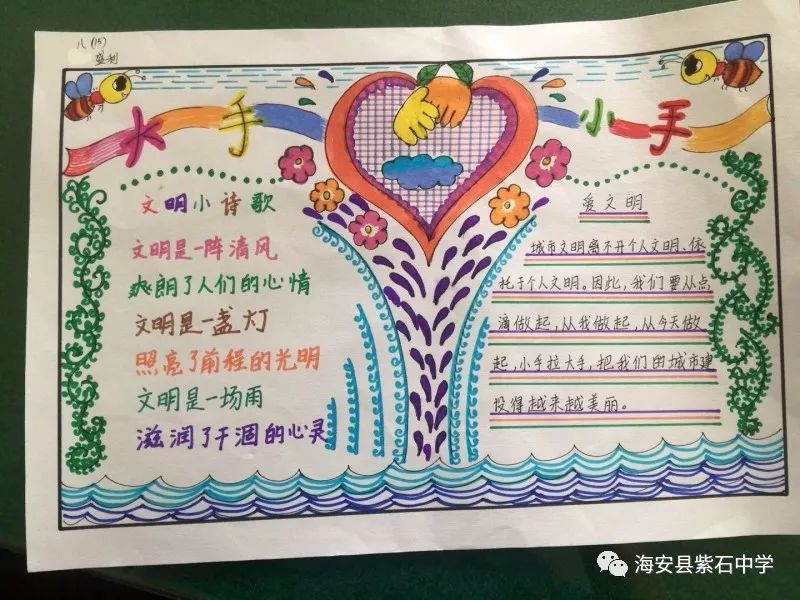 八(15)
盛利
大手
小手
文明小诗歌
文明是一阵清风
爽朗了人们的心情
文明是一盏灯
照亮了前程的光明
文明是一场雨
滋润了干涸的心灵
爱文明
城市文明离不开个人文明、依
托于个人文明。因此,我们要从点
滴做起,从我做起,从今天做
起,小手拉大手,把我们的城市建
设得越来越美丽。
海安县紫石中学